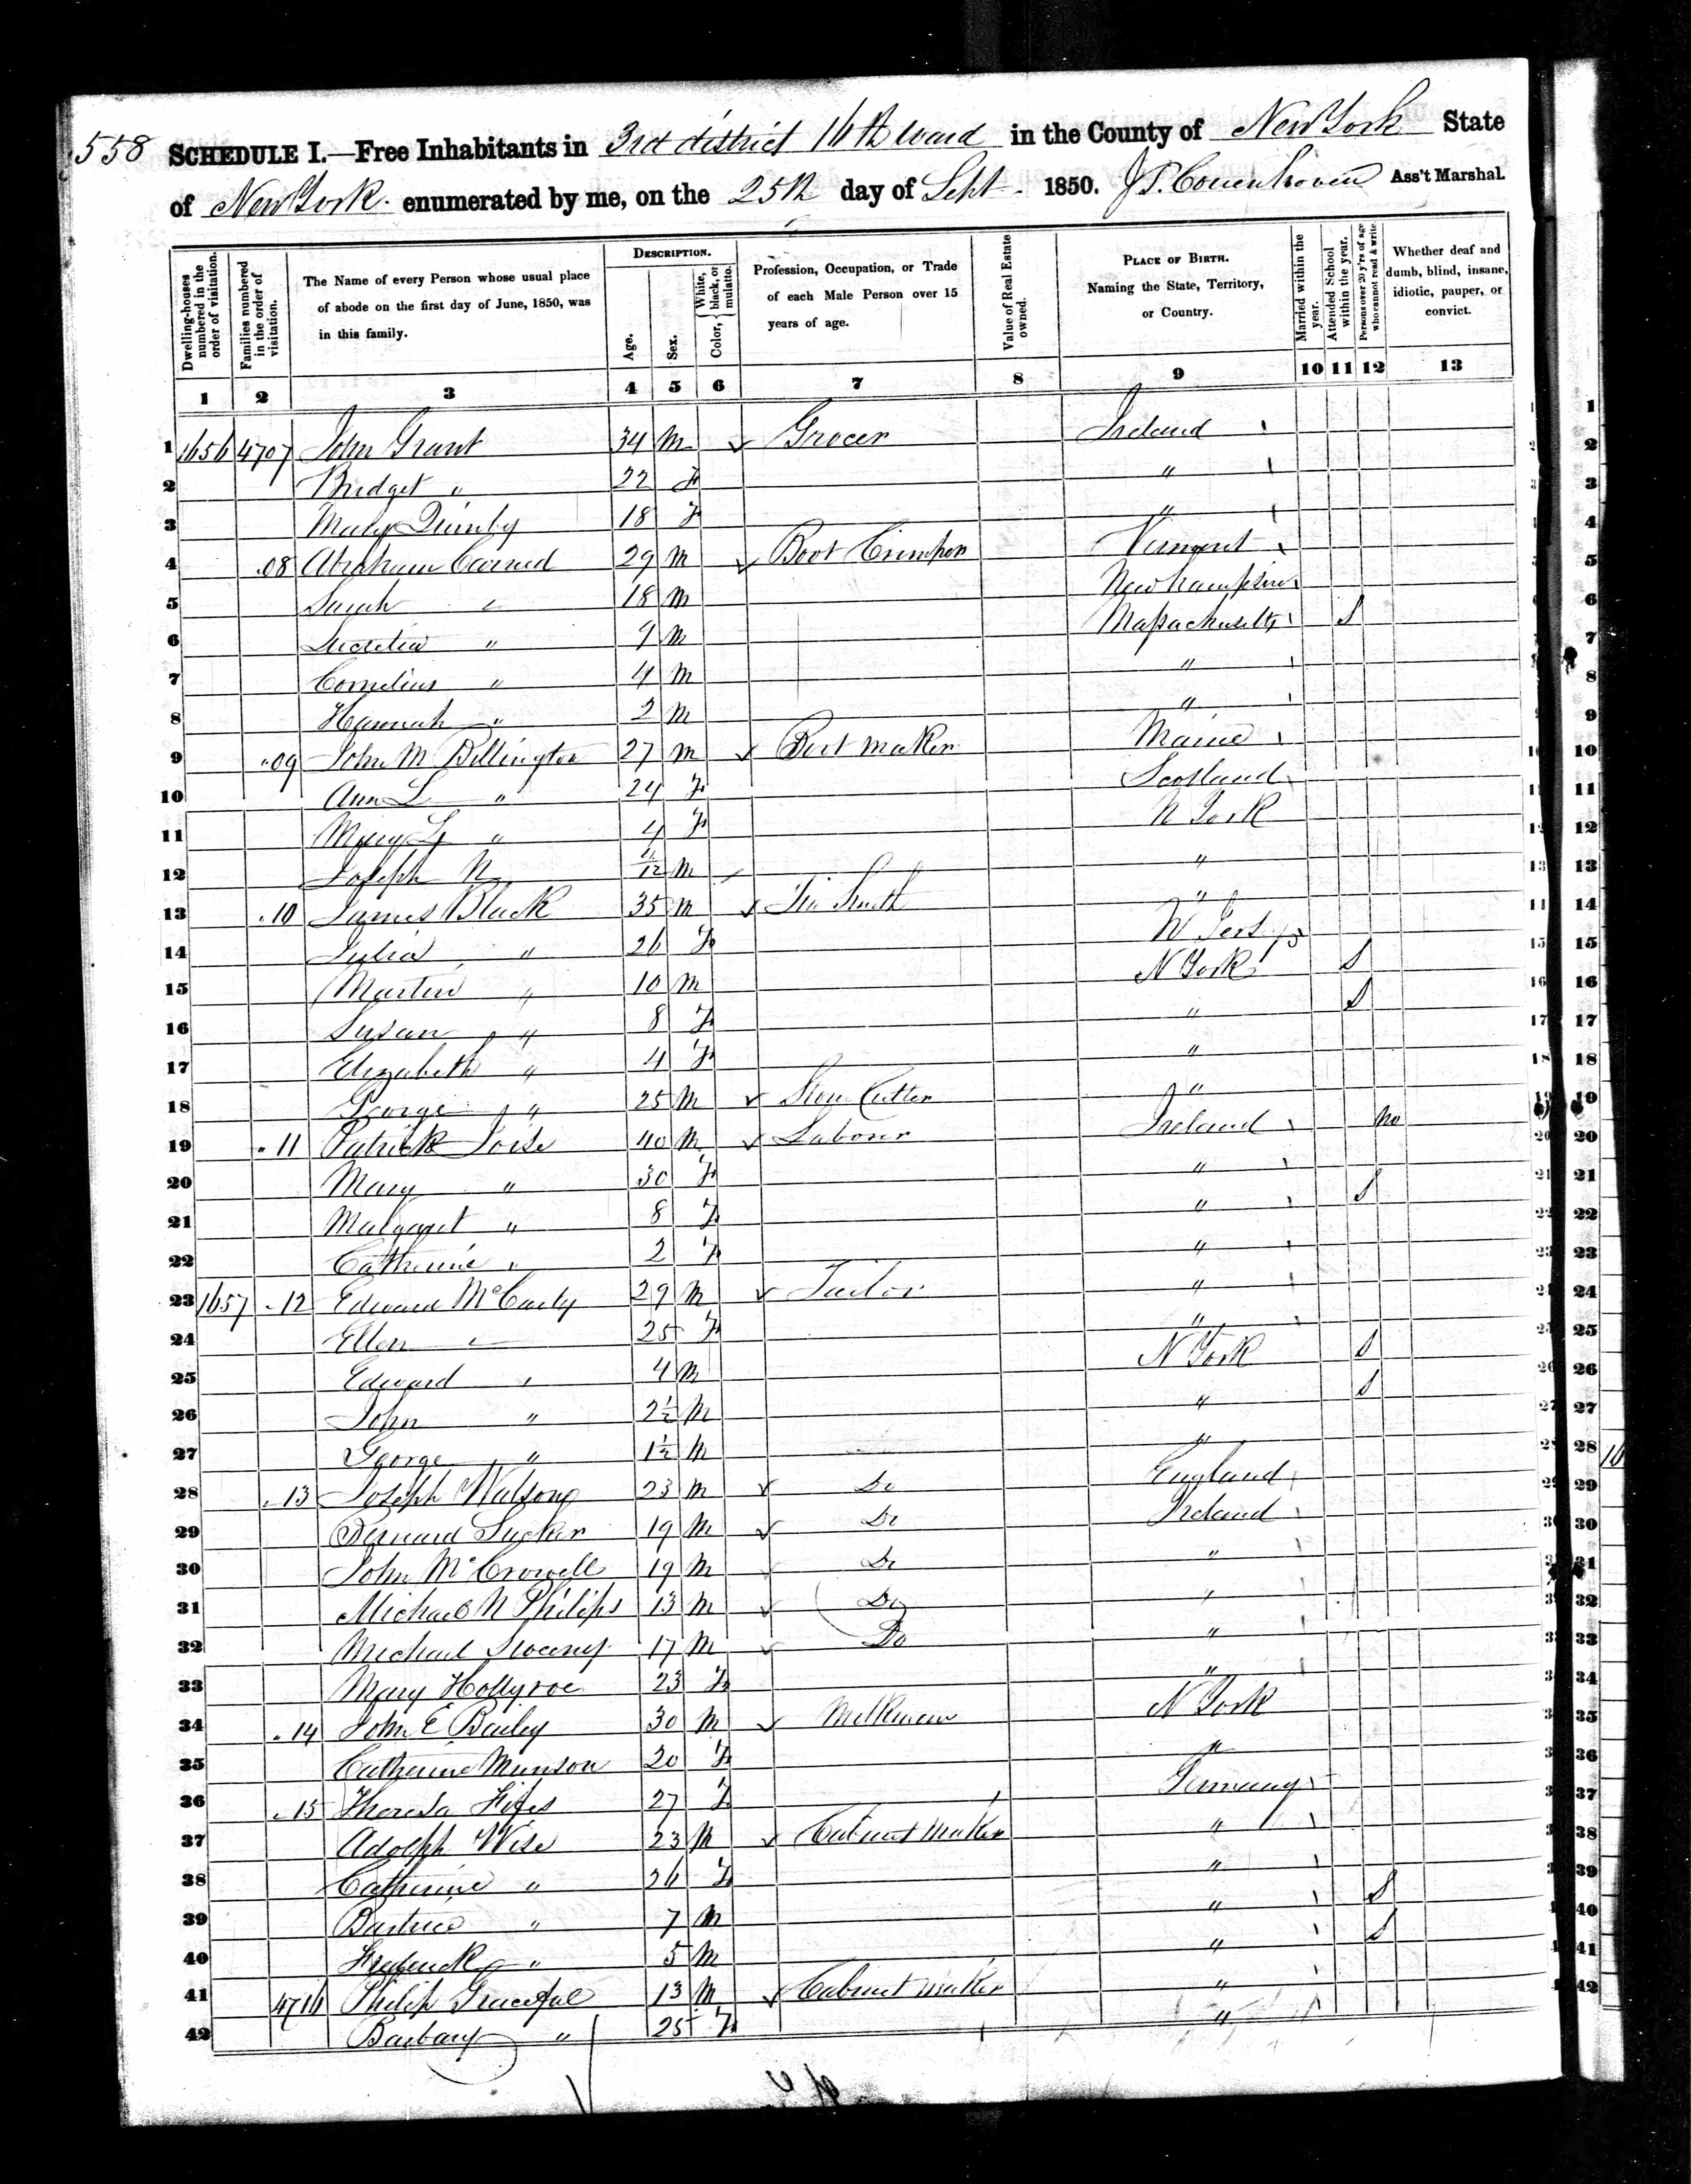 558 SCHEDULE I.—Free Inhabitants in 3rd district 16th Ward in the County of New York State
of New York enumerated by me, on the 25th day of Sept. 1850. J. P. Couenhoven Ass't Marshal.
Dwelling-houses numbered in the order of visitation.
Families numbered in the order of visitation.
The Name of every Person whose usual place of abode on the first day of June, 1850, was in this family.
DESCRIPTION.
Age.
Sex.
Color, { White, black, or mulatto.
Profession, Occupation, or Trade of each Male Person over 15 years of age.
Value of Real Estate owned.
PLACE OF BIRTH. Naming the State, Territory, or Country.
Married within the year.
Attended School within the year.
Persons over 20 y'rs of age who cannot read & write
Whether deaf and dumb, blind, insane, idiotic, pauper, or convict.
1 2 3 4 5 6 7 8 9 10 11 12 13
1 1656 4707 John Grant 34 M Grocer Ireland
2 Bridget " 22 F "
3 Mary Quinby 18 F "
4 08 Abraham 29 M Boot Crimper Vermont
5 Sarah " 18 M New hampshire
6 " 9 M Massachusetts S
7 Cornelius " 4 M "
8 Hannah " 2 M "
9 09 John M Billington 27 M Boot maker Maine
10 Ann L " 24 F Scotland
11 Mary L " 4 F N York
12 Joseph N M "
13 10 James Black 35 M Tin Smith "
14 Julia " 26 F N Jersy
15 Martin " 10 M N York S
16 Susan " 8 F " S
17 Elizabeth " 4 F "
18 George " 25 M Stone Cutter "
19 11 Patrick 40 M Labour Ireland no
20 Mary " 30 F "
21 Margaret " 8 F " S
22 Catherine " 2 F "
23 1657 12 Edward McCarty 29 M Tailor "
24 Ellen " 25 F "
25 Edward " 4 M N York S
26 John " 2½ M " S
27 George " 1½ M "
28 13 Joseph Watson 23 M Do England
29 Bernard Tucker 19 M Do Ireland
30 John McCrowell 19 M Do "
31 Michael N Philips 13 M Do "
32 Michael 17 M Do "
33 Mary Hollyroe 23 F "
34 14 John E Bailey 30 M Milkman N York
35 Catherine Munson 20 F "
36 15 Theresa 27 F Germany
37 Adolph Wise 23 M Cabinet Maker "
38 Catherine " 26 F "
39 " 7 M " S
40 Frederick " 5 M " S
41 4716 Philip 13 M Cabinet maker "
42 Barbary " 25 F "